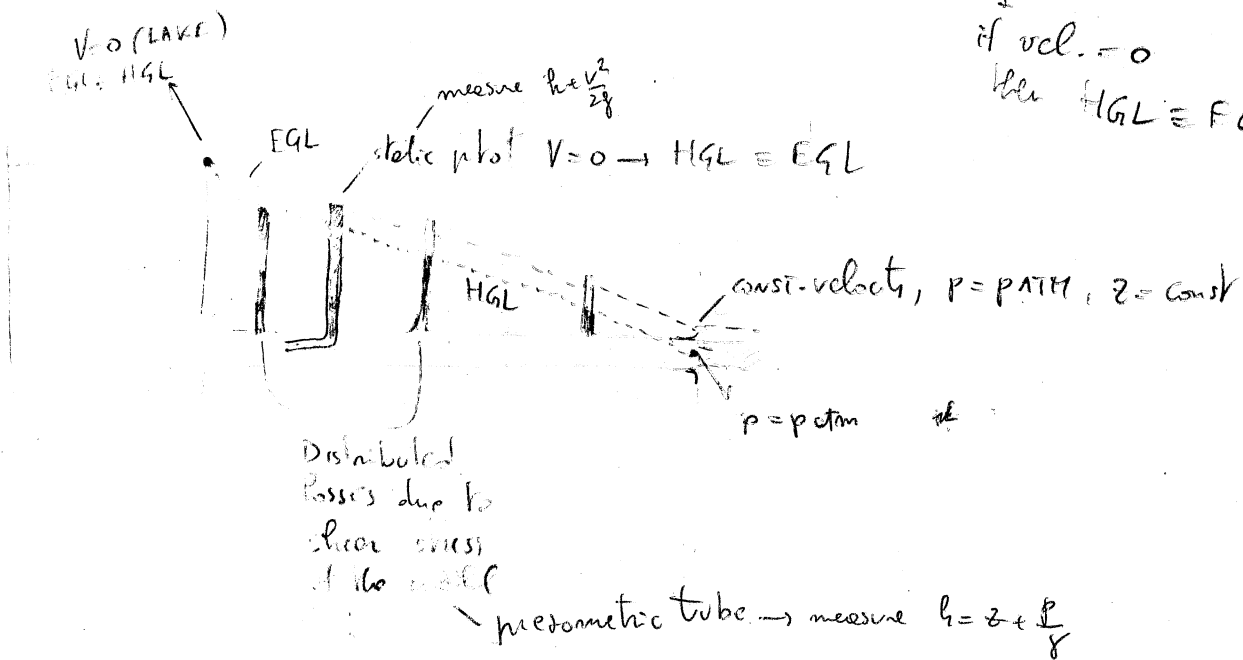 V=0 (LAKE)
EGL = HGL
if vel. = 0
then HGL ≡ EG
measure h+v²/2g
EGL
static pitot V=0 → HGL ≡ EGL
HGL
const. velocity, p=pATM, z=const
p=patm
Distributed
losses due to
shear stress
piezometric tube → measure h=z+p/γ